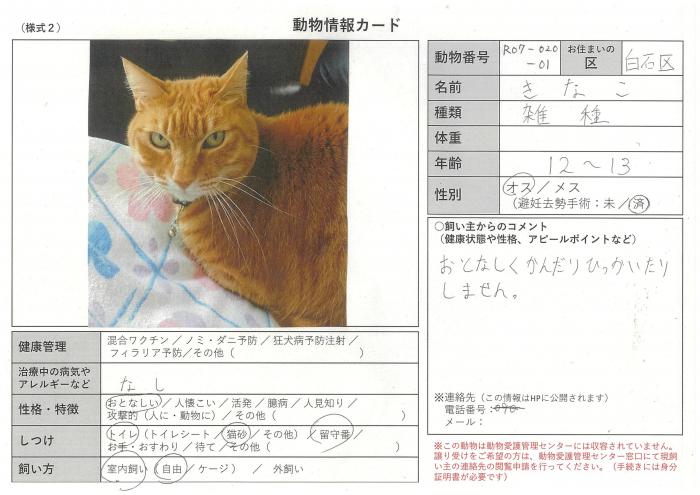 （様式２）
動物情報カード
動物番号 R07-020-01 お住まいの区 白石区
名前 きなこ
種類 雑種
体重
年齢 12～13
性別 オス／メス
（避妊去勢手術：未／済）
○飼い主からのコメント
（健康状態や性格、アピールポイントなど）
おとなしくかんだりひっかいたり
しません。
※連絡先（この情報はHPに公開されます）
電話番号：090-
メール：
健康管理 混合ワクチン／ノミ・ダニ予防／狂犬病予防注射／
フィラリア予防／その他（ ）
治療中の病気や
アレルギーなど なし
性格・特徴 おとなしい／人懐こい／活発／臆病／人見知り／
攻撃的（人に・動物に）／その他（ ）
しつけ トイレ（トイレシート／猫砂／その他）／留守番／
お手・おすわり／待て／その他（ ）
飼い方 室内飼い（自由／ケージ） ／ 外飼い
※この動物は動物愛護管理センターには収容されていません。
譲り受けをご希望の方は、動物愛護管理センター窓口にて現飼
い主の連絡先の閲覧申請を行ってください。（手続きには身分
証明書が必要です）